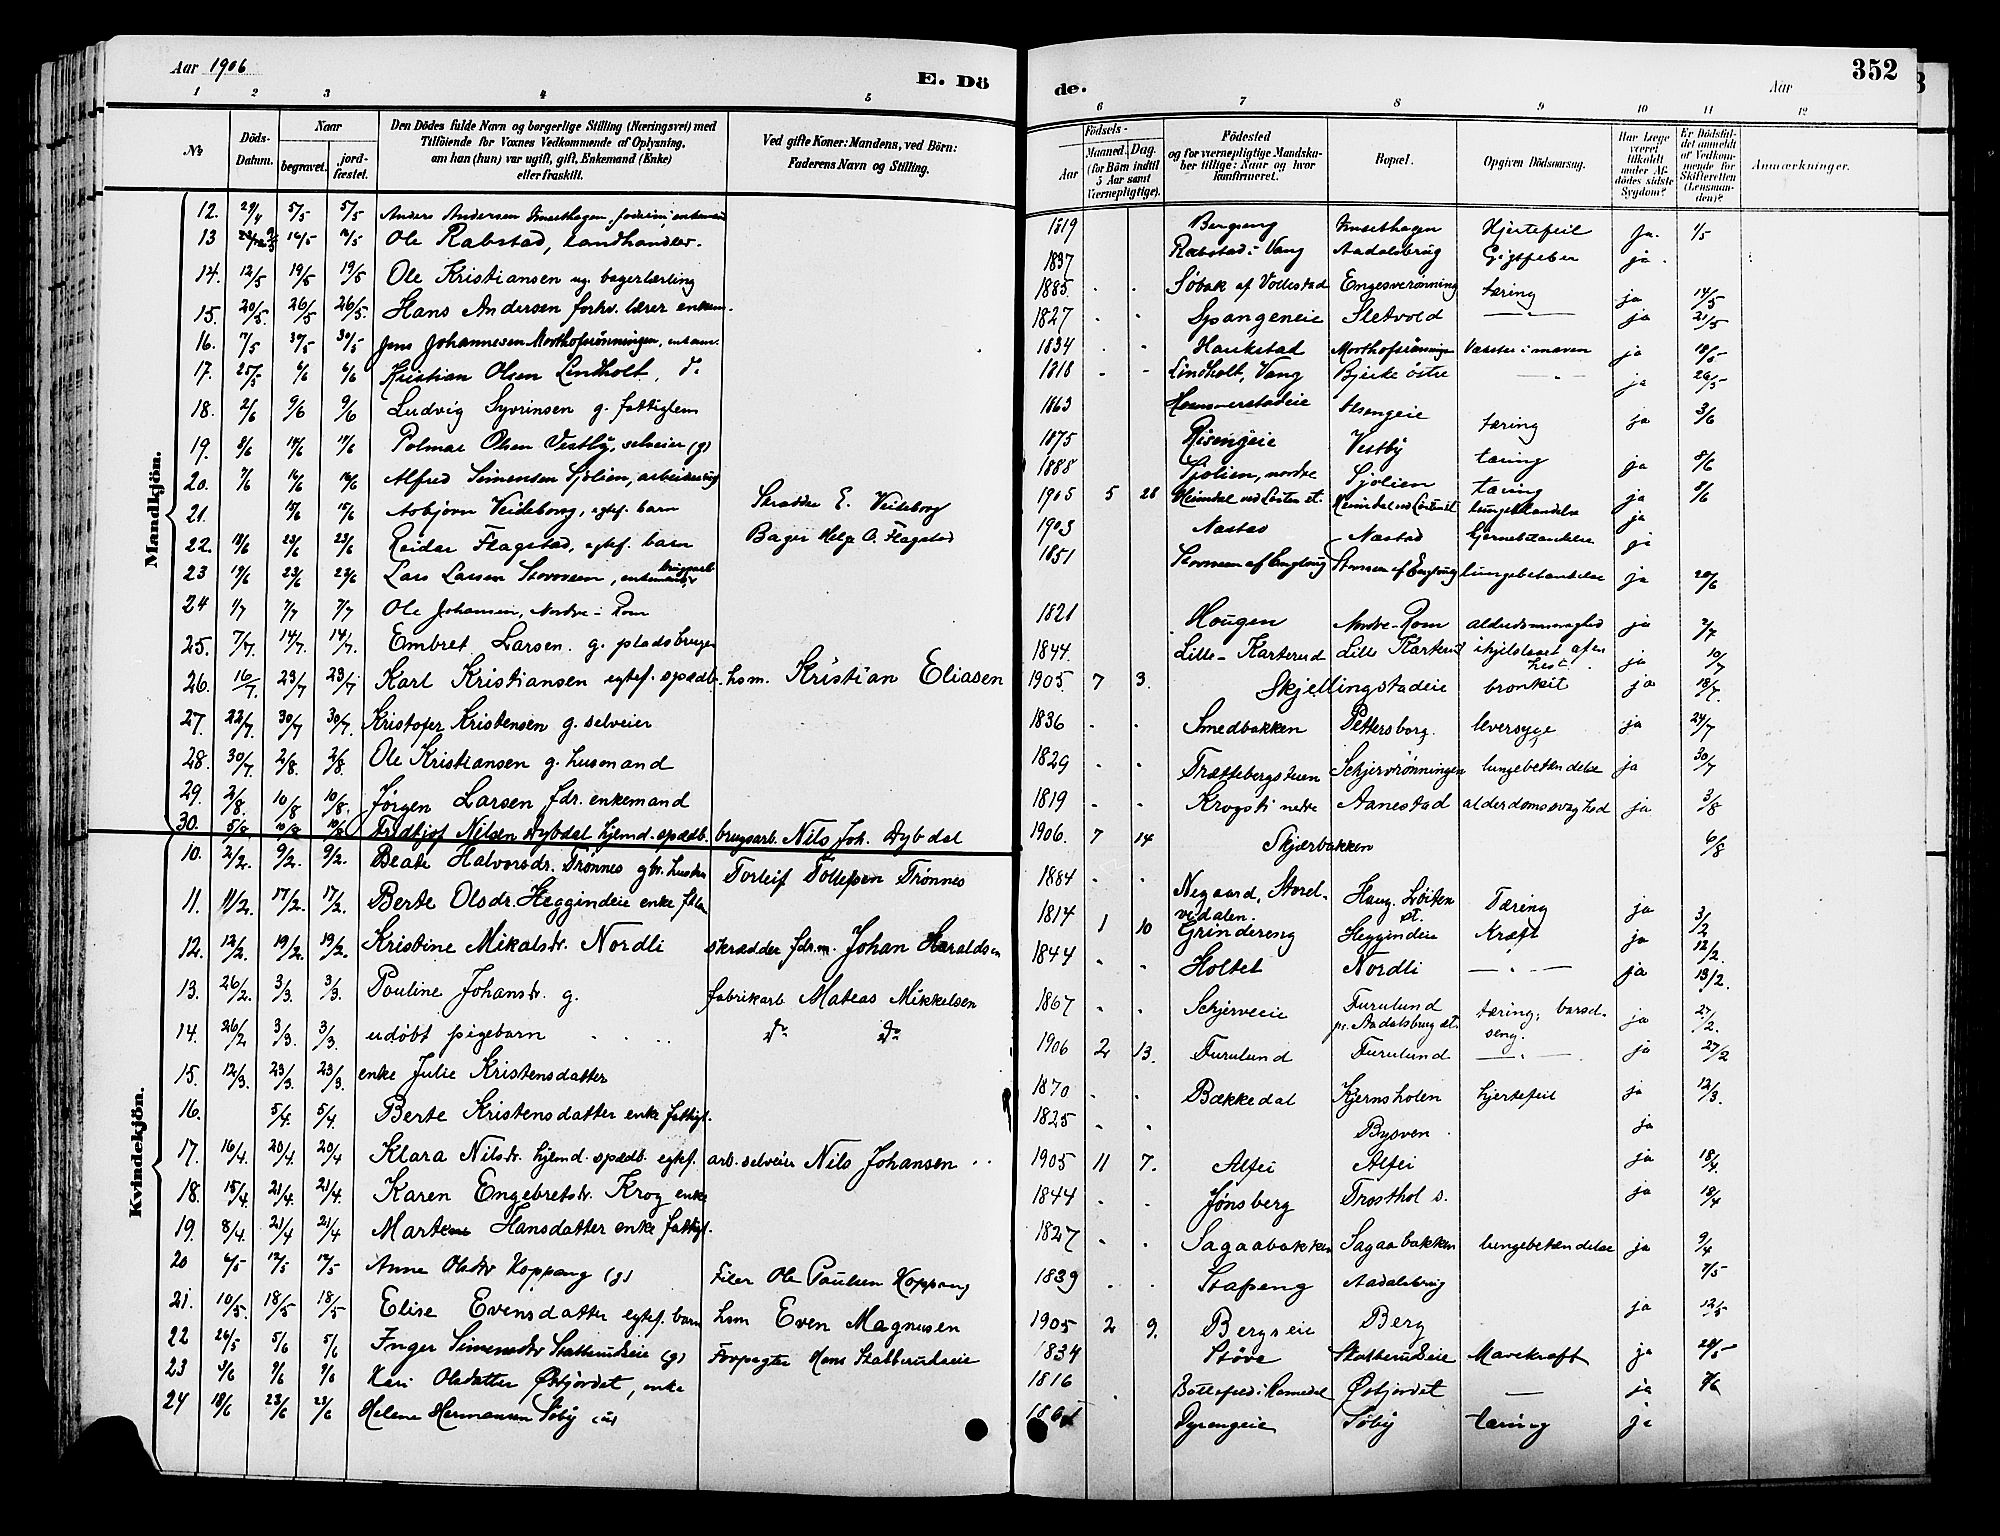 Aar 1906
E. Dö
de.
Aar
352
1 2 3 4 5 6 7 8 9 10 11 12
No
Döds-Datum.
Naar
begravet.
jord-fæstet.
Den Dödes fulde Navn og borgerlige Stilling (Næringsvei) med Tilföiende for Voxnes Vedkommende af Oplysning, om han (hun) var ugift, gift, Enkemand (Enke) eller fraskilt.
Ved gifte Koner: Mandens, ved Börn: Faderens Navn og Stilling.
Födsels-
Aar
Maaned. Dag.
(for Börn indtil 5 Aar samt Værnepligtige).
Födested og for værnepligtige Mandskaber tillige: Naar og hvor konfirmeret.
Bopæl.
Opgiven Dödsaarsag.
Har Læge været tilkaldt under Afdödes sidste Sygdom?
Er Dödsfaldet anmeldt af Vedkommende for Skifteretten (Lensmanden)?
Anmærkninger.
Mandkjön.
12. 29/4 5/5 5/5 Anders Andersen 1819 Hjertefeil ja. 1/5
13 16/5 16/5 Ole Rabstad, Landhandler. 1837 Rabstad i Vang Aadalsbrug Gigtfeber ja.
14. 12/5 19/5 19/5 Ole Kristiansen ug. bagerlærling 1885. Søbak af Vollestad Engesverønning tæring ja 14/5
15. 20/5. 26/5 26/5. Hans Andersen forhv. lærer enkem. 1827 Spangeneie Sletvold —"— ja 21/5
16. 7/5 30/5 30/5 Jens Johannesen Morthofsrønningen, enkem. 1834 Haukstad Morthofsrønningen Væxter i maven ja 10/5
17. 25/5 6/6 6/6 Kristian Olsen Lindholt, do 1818 Lindholt, Vang Bjerke østre —"— ja 26/5
18. 2/6 9/6 9/6 Ludvig Syvrinsen g. fattiglem 1863 tæring ja 3/6
19. 8/6 14/6 14/6 Polmar Olsen Vestby, selveier (g) 1875 Risengeie Vestby tæring ja 8/6
20. 7/6 16/6 16/6 Alfred Simensen Sjølien, 1888 Sjølien, nordre Sjølien tæring ja 8/6
21. 15/6 15/6 Asbjørn Veideborg, egtef. barn Skrædder E. Veideborg 1905 5 28 ja
22. 18/6 23/6 23/6 Reidar Flagstad, egtef. barn Bager Helge O. Flagstad 1903 Næstad Næstad hjernebetændelse ja
23 19/6 23/6 23/6 Lars Larsen 1851 lungebetændelse ja 20/6
24 1/7 7/7 7/7 Ole Johansen, Nordre-Rom 1821 Hougen Nordre-Rom ja 2/7
25. 7/7. 14/7. 14/7. Embret Larsen. g. pladsbruger 1844. Lille-Karterud Lille Karterud ihjelslaaet af en hest. ja 10/7
26. 16/7. 23/7 23/7 Karl Kristiansen egtef. spædb. hsm. Kristian Eliasen 1905. 7 3. Skjellingstadeie bronkit ja 18/7.
27. 22/7. 30/7 30/7. Kristofer Kristensen g. selveier 1836 Smedbakken Pettersborg. leversyge ja 24/7
28. 30/7. 2/8. 2/8. Ole Kristiansen g. husmand 1829 Trættebergstuen Schjerrønningen lungebetændelse ja 30/7
29. 2/8. 10/8 10/8. Jørgen Larsen fdr. enkemand 1819 Krogsti nedre Aanestad alderdomssvaghed ja 3/8
30. 5/8 10/8 10/8 Fridtjof Nilsen Dybdal hjemd. spædb. brugsarb. Nils Joh. Dybdal 1906. 7 14 Skjærbakken 6/8
Kvindekjön.
10. 2/2. 9/2. 9/2. Beate Halvorsdr. Trønnes Torleif Tollefsen Trønnes 1884 Negaard, Storelvedalen. Haug. Løiten st. Tæring ja 3/2
11. 11/2. 17/2. 17/2. Berte Olsdr. Heggindeie enke 1814 1 10 Grindereng Heggindeie Kræft ja 12/2.
12. 12/2. 19/2. 19/2. Kristine Mikalsdr. Nordli skrædder fdr.m. Johan Haraldsen 1844 Holtet Nordli —"— ja 13/2.
13. 26/2. 3/3. 3/3. Pauline Johansdr. g. fabrikarb. Mateas Mikkelsen 1867 Schjerveeie Furulund pr. Aadalsbrug st. tæring; barselseng. ja 27/2.
14. 26/2 3/3. 3/3. udøbt pigebarn do do 1906 2 13. Furulund Furulund —"— ja 27/2
15. 12/3. 23/3. 23/3. enke Julie Kristensdatter 1870 Bækkedal Kjernsholen hjertefeil ja 12/3.
16. 5/4. 5/4. Berte Kristensdatter enke fattigl. 1825 Bysven. ja
17. 16/4. 20/4. 20/4 Klara Nilsdr. hjemd. spædb. egtef. arb. selveier Nils Johansen 1905 11 7. Alfei Alfei ja 18/4.
18. 15/4. 21/4. 21/4. Karen Engebretsdr. Krog enke 1844 Jønsberg Trosthol s. ja 18/4
19. 8/4. 21/4 21/4 Marte Hansdatter enke fattigl. 1827 Sagaabakken Sagaabakken lungebetændelse ja 9/4
20 6/5 12/5 12/5 Anne Olsdtr Koppang (g) Filer Ole Paulsen Koppang 1839 Stapeng Aadalsbrug 7/5
21. 10/5. 18/5 18/5 Elise Evensdatter egtef. barn hsm Even Magnusen 1905 2 9. Bergseie Berg ja 12/5
22 26/5 5/6 5/6 Inger Simensdtr Stabberudseie (g) Forpagter Hans Stabberudseie 1834 Støve Stabberudseie Mavekræft ja 28/5
23 3/6 9/6 9/6 Kari Olsdatter Østjordet, enke 1816 Østjordet — ja 7/6
24 18/6 23/6 23/6 Helene Hermansen Søby Dyrengeie Søby tæring ja